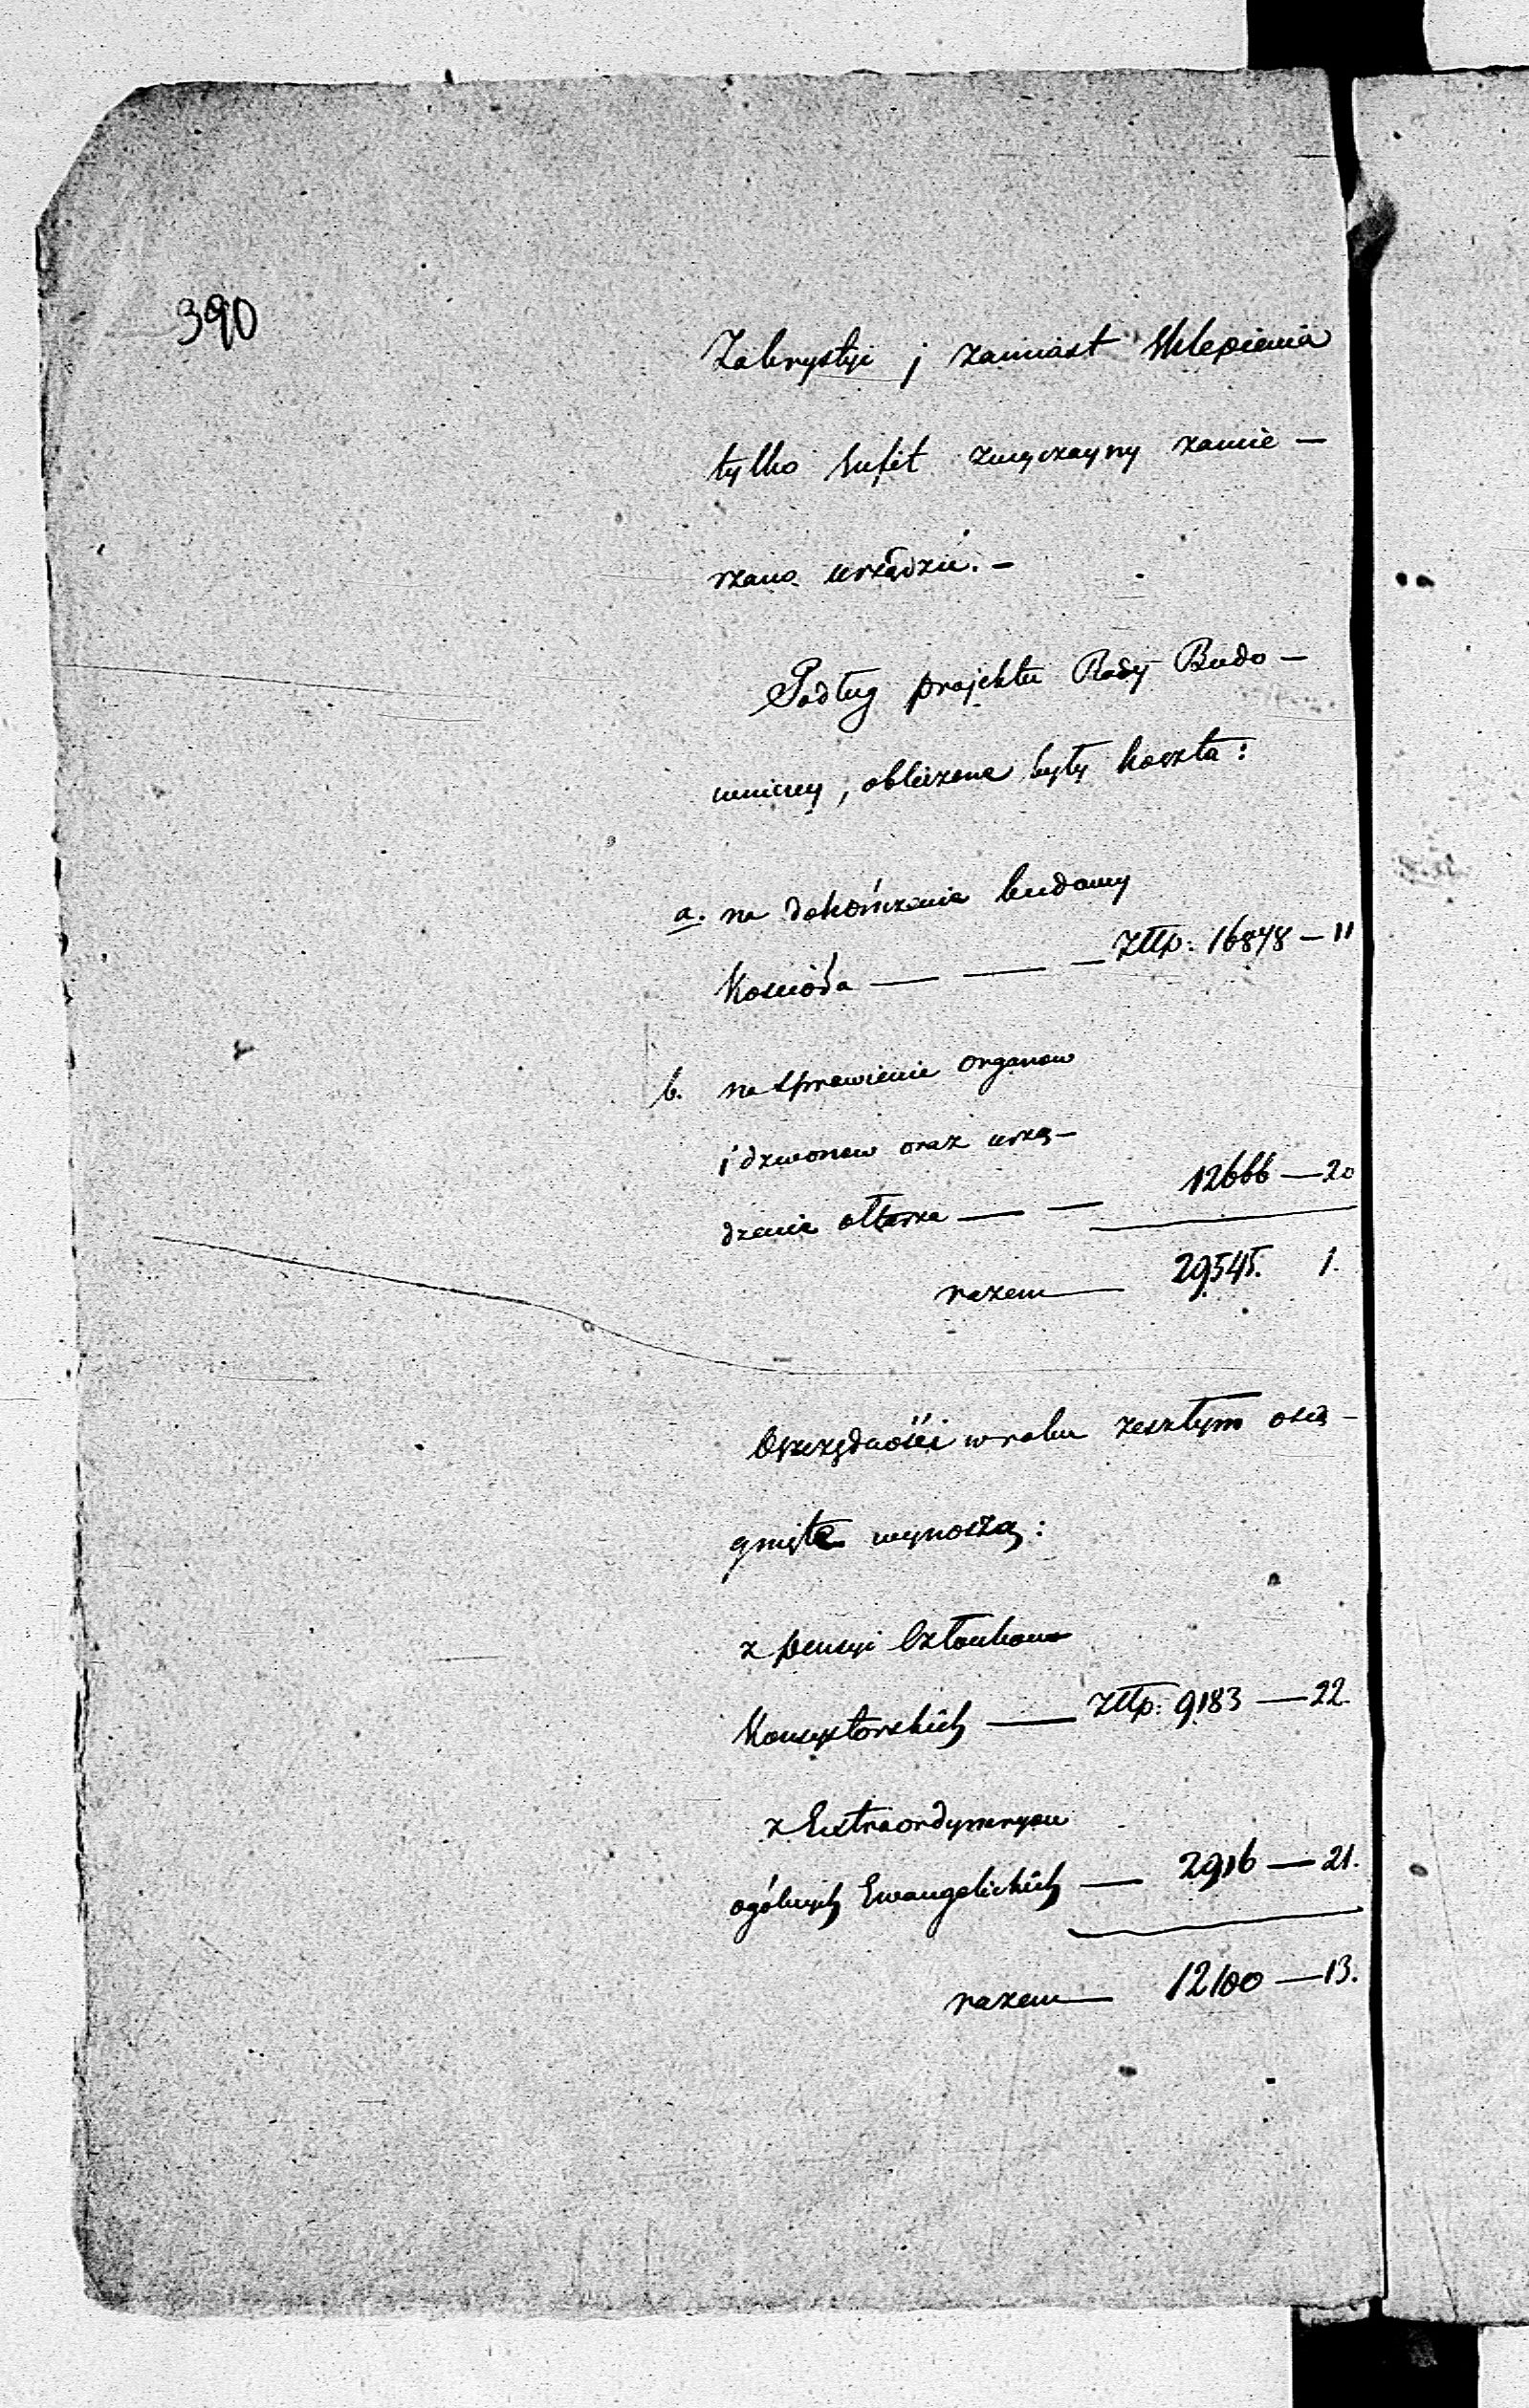 390
Zakrystyi j zamiast sklepienia
tylko sufit zwyczayny zamie–
rzano urządzić. –
Podług projektu Rady Budo–
wniczey, obliczone były koszta:
a. na dokończenie budowy
Kościoła — — — Złlp. 16878 – 11
b. na sprawienie organow
i dzwonow oraz urzą–
dzenie ołtarza — — 12666 — 20
razem — 29545. 1.
Oszczędności w roku zeszłym osią–
gnięte wynoszą:
z pensyi Członkow
Konsystorskich — Złlp. 9183 — 22.
z Extraordynaryow
ogólnych Ewangelickich — 2916 — 21.
razem — 12100 — 13.